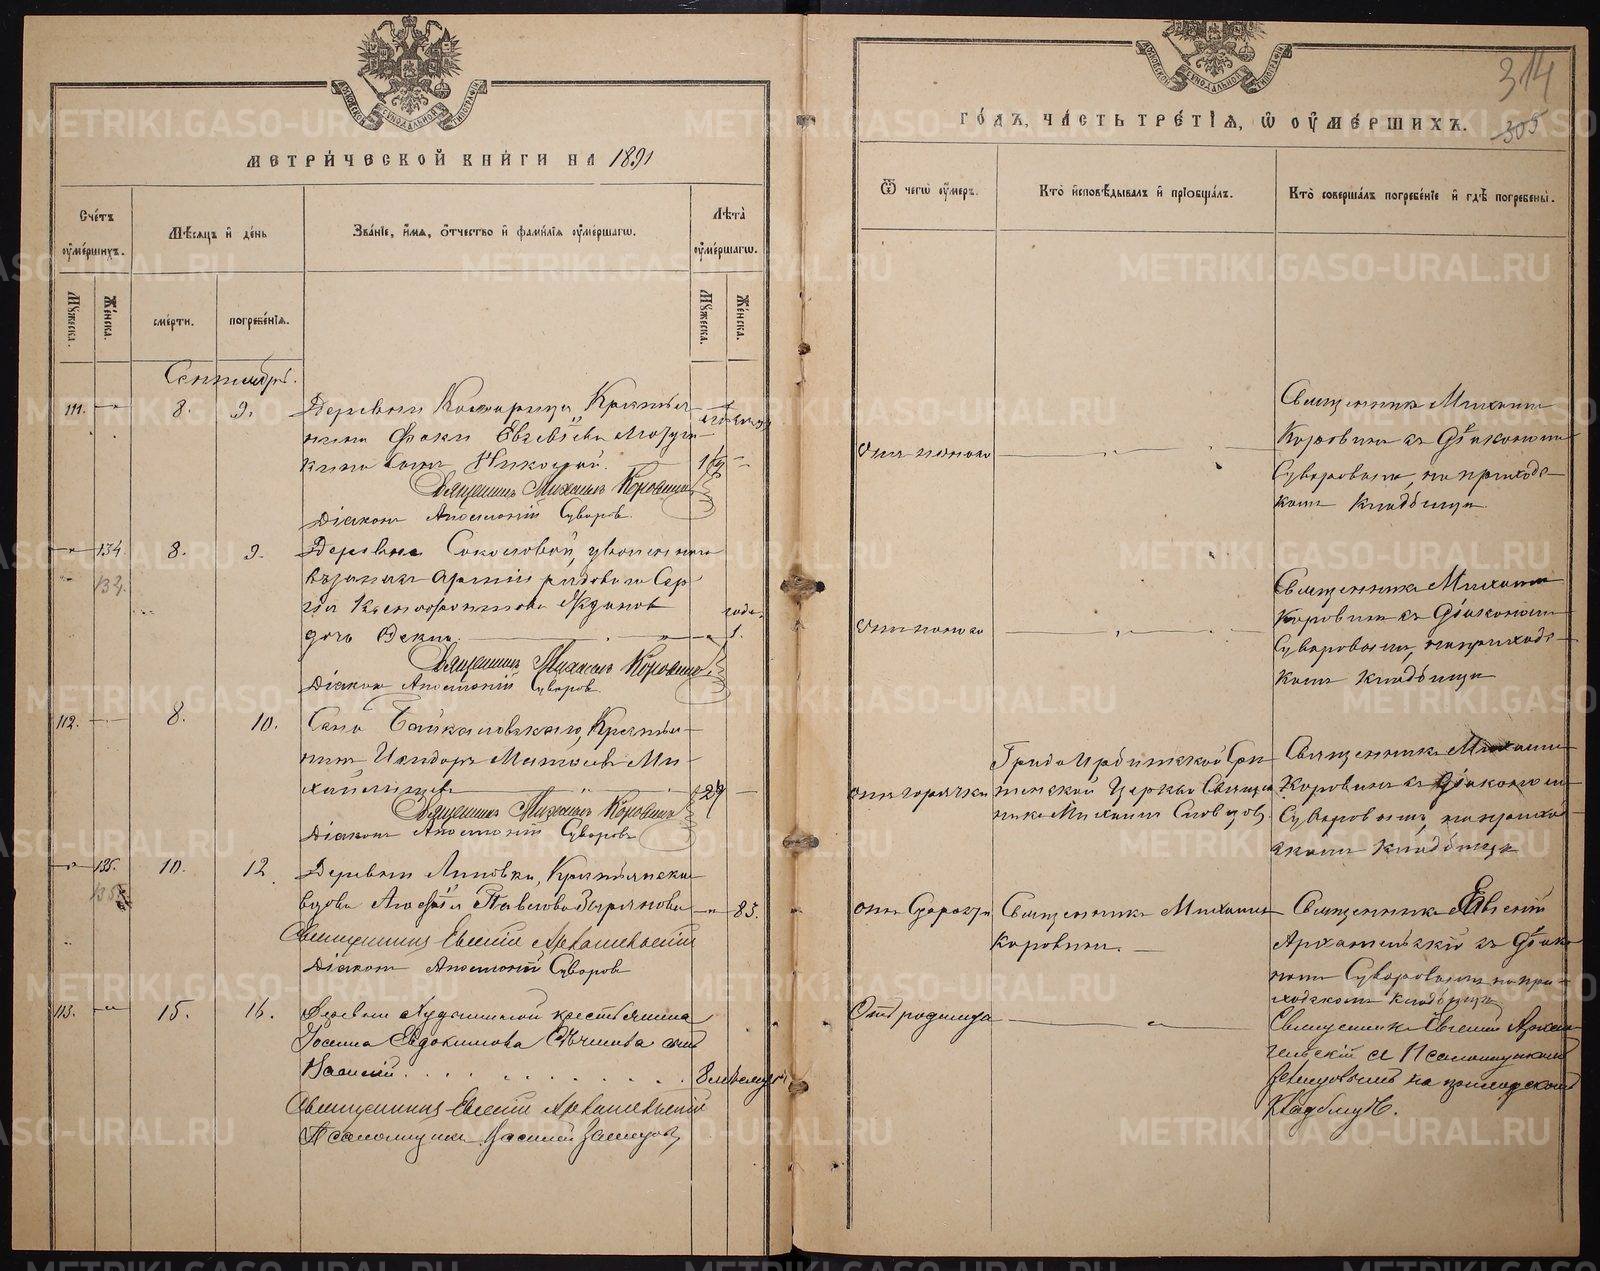 МЕТРИ́ЧЕСКОЙ КНИ́ГИ НА 1891
Сче́тъ ᲂу҆ме́ршихъ.
Мѣ́сяцъ и҆ де́нь
Зва́нїе, и҆́мя, ѻ҆́тчество и҆ фами́лїя ᲂу҆ме́ршагѡ.
Лѣта̀ ᲂу҆ме́ршагѡ.
Мꙋ́жеска.
Же́нска.
сме́рти.
погребе́нїѧ.
Мꙋ́жеска.
Же́нска.
Сентябрь.
111. 8. 9. Деревни Крестья-
нина Фоки Евсевіева
сынъ Николай. 1½
Священникъ Михаилъ Коровинъ
Діаконъ Аполлоній Суворовъ.
134. 8. 9. Деревни Соколовой, уволеннаго
132.
въ запасъ арміи рядоваго Сер-
гія Ксенофонтова Жданов
дочь года. 1.
Священникъ Михаилъ Коровинъ
Діаконъ Аполлоній Суворовъ
112. 8. 10. Села Байкаловскаго, Крестья-
нинъ Исидоръ Матѳіевъ Ми-
хайлищевъ 29
Священникъ Михаилъ Коровинъ
Діаконъ Аполлоній Суворовъ
135. 10. 12. Деревни Липовки, Крестьянская
вдова Агафія Павлова Зырянова 85.
Священникъ Евгеній Архангельскій
Діаконъ Аполлоній Суворовъ
113. 15. 16. Деревни крестьянина
Іосифа Евдокимова сынъ
Василій
Священникъ Евгеній Архангельскій
Псаломщикъ Василій
ГО́ДЪ, ЧА́СТЬ ТРЕ́ТЇѦ, Ѡ҆ ОУ҆МЕ́РШИХЪ.
314
305
Ѿ чегѡ̀ ᲂу҆́меръ.
Кто̀ и҆сповѣ́дывалъ и҆ прїѻбща́лъ.
Кто̀ соверша́лъ погребе́нїе и҆ гдѣ̀ погребены̀.
Отъ поноса
Священникъ Михаилъ
Коровинъ съ Діакономъ
Суворовымъ, на приход-
скомъ кладбищѣ
Отъ поноса
Священникъ Михаилъ
Коровинъ съ Діакономъ
Суворовымъ, на приход-
скомъ кладбищѣ
Отъ горячки
Града Ирбитской Сре-
тенской Церкви Священ-
никъ Михаилъ Словцовъ
Священникъ Михаилъ
Коровинъ съ Діакономъ
Суворовымъ, на приход-
скомъ кладбищѣ
Отъ старости
Священникъ Михаилъ
Коровинъ.
Священникъ Евгеній
Архангельскій съ Діако-
номъ Суворовымъ на при-
ходскомъ кладбищѣ
Отъ родимца
Священникъ Евгеній Архан-
гельскій съ Псаломщикомъ
на приходскомъ
кладбищѣ.